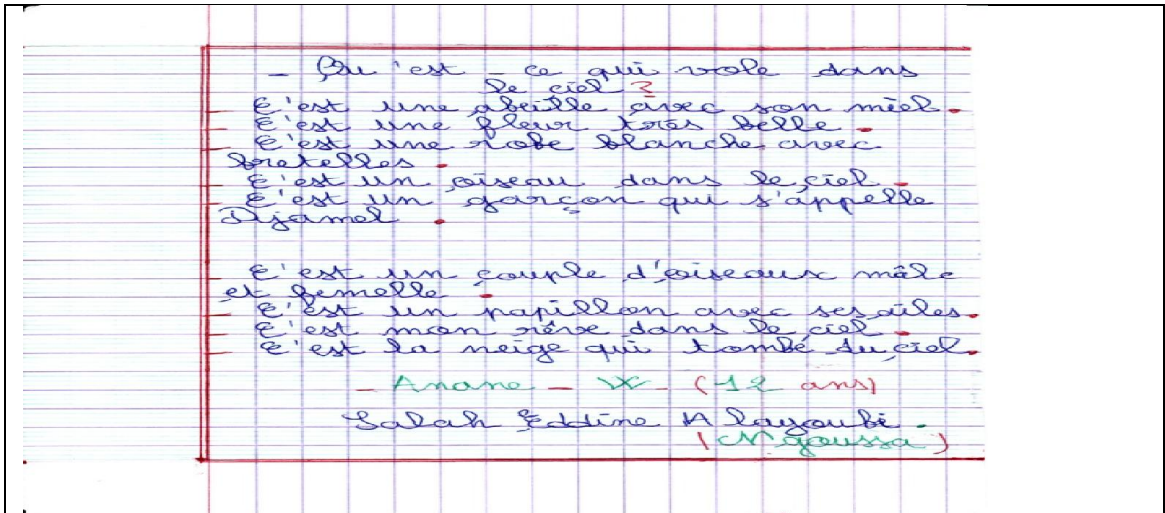 - Qu'est - ce qui vole dans
le ciel ?
- C'est une abeille avec son miel.
- C'est une fleur très belle.
- C'est une robe blanche avec
bretelles.
- C'est un oiseau dans le ciel.
- C'est un garçon qui s'appelle
Djamel.
- C'est un couple d'oiseaux mâle
et femelle.
- C'est un papillon avec ses ailes.
- C'est mon rêve dans le ciel.
- C'est la neige qui tombé du ciel.
- Anane - W - (12 ans)
Salah Eddine Alayoubi.
(N'goussa)